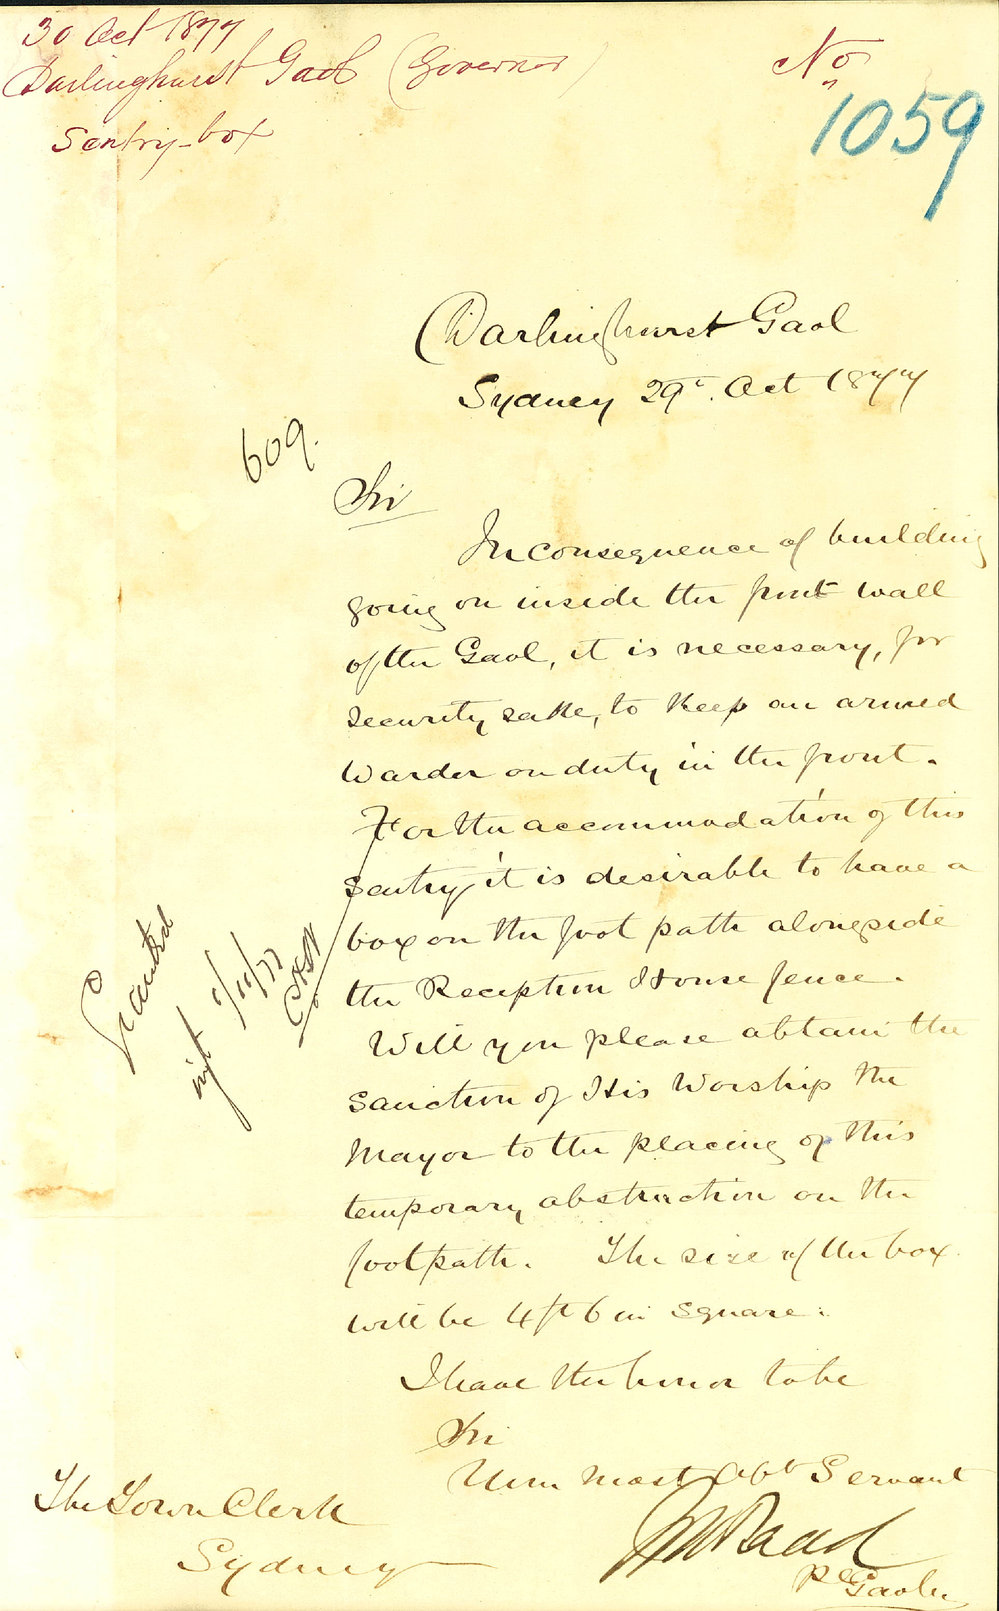 30 Oct 1877
Darlinghurst Gaol (Governor)
Sentry-box
No
1059
Darlinghurst Gaol
Sydney 29t. Oct 1877
609.
Sir
In consequence of building
going on inside the front wall
of the Gaol, it is necessary, for
security sake, to keep an armed
Warder on duty in the front.
For the accommodation of this
sentry it is desirable to have a
box on the foot path alongside
the Reception House fence.
Will you please obtain the
sanction of His Worship the
Mayor to the placing of this
temporary obstruction on the
footpath. The size of the box
will be 4 ft 6 in square.
I have the honor to be
Sir
Your most Obt Servant
Read
Pl Gaoler
The Town Clerk
Sydney
Granted
1/11/77